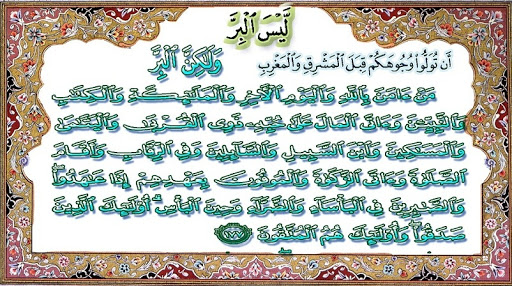 لَّيْسَ ٱلْبِرَّ
أَن تُوَلُّوا۟ وُجُوهَكُمْ قِبَلَ ٱلْمَشْرِقِ وَٱلْمَغْرِبِ وَلَٰكِنَّ ٱلْبِرَّ
مَنْ ءَامَنَ بِٱللَّهِ وَٱلْيَوْمِ ٱلْءَاخِرِ وَٱلْمَلَٰٓئِكَةِ وَٱلْكِتَٰبِ
وَٱلنَّبِيِّۦنَ وَءَاتَى ٱلْمَالَ عَلَىٰ حُبِّهِۦ ذَوِى ٱلْقُرْبَىٰ وَٱلْيَتَٰمَىٰ
وَٱلْمَسَٰكِينَ وَٱبْنَ ٱلسَّبِيلِ وَٱلسَّآئِلِينَ وَفِى ٱلرِّقَابِ وَأَقَامَ
ٱلصَّلَوٰةَ وَءَاتَى ٱلزَّكَوٰةَ وَٱلْمُوفُونَ بِعَهْدِهِمْ إِذَا عَٰهَدُوا۟ ۖ
وَٱلصَّٰبِرِينَ فِى ٱلْبَأْسَآءِ وَٱلضَّرَّآءِ وَحِينَ ٱلْبَأْسِ ۗ أُو۟لَٰٓئِكَ ٱلَّذِينَ
صَدَقُوا۟ ۖ وَأُو۟لَٰٓئِكَ هُمُ ٱلْمُتَّقُونَ ١٧٧